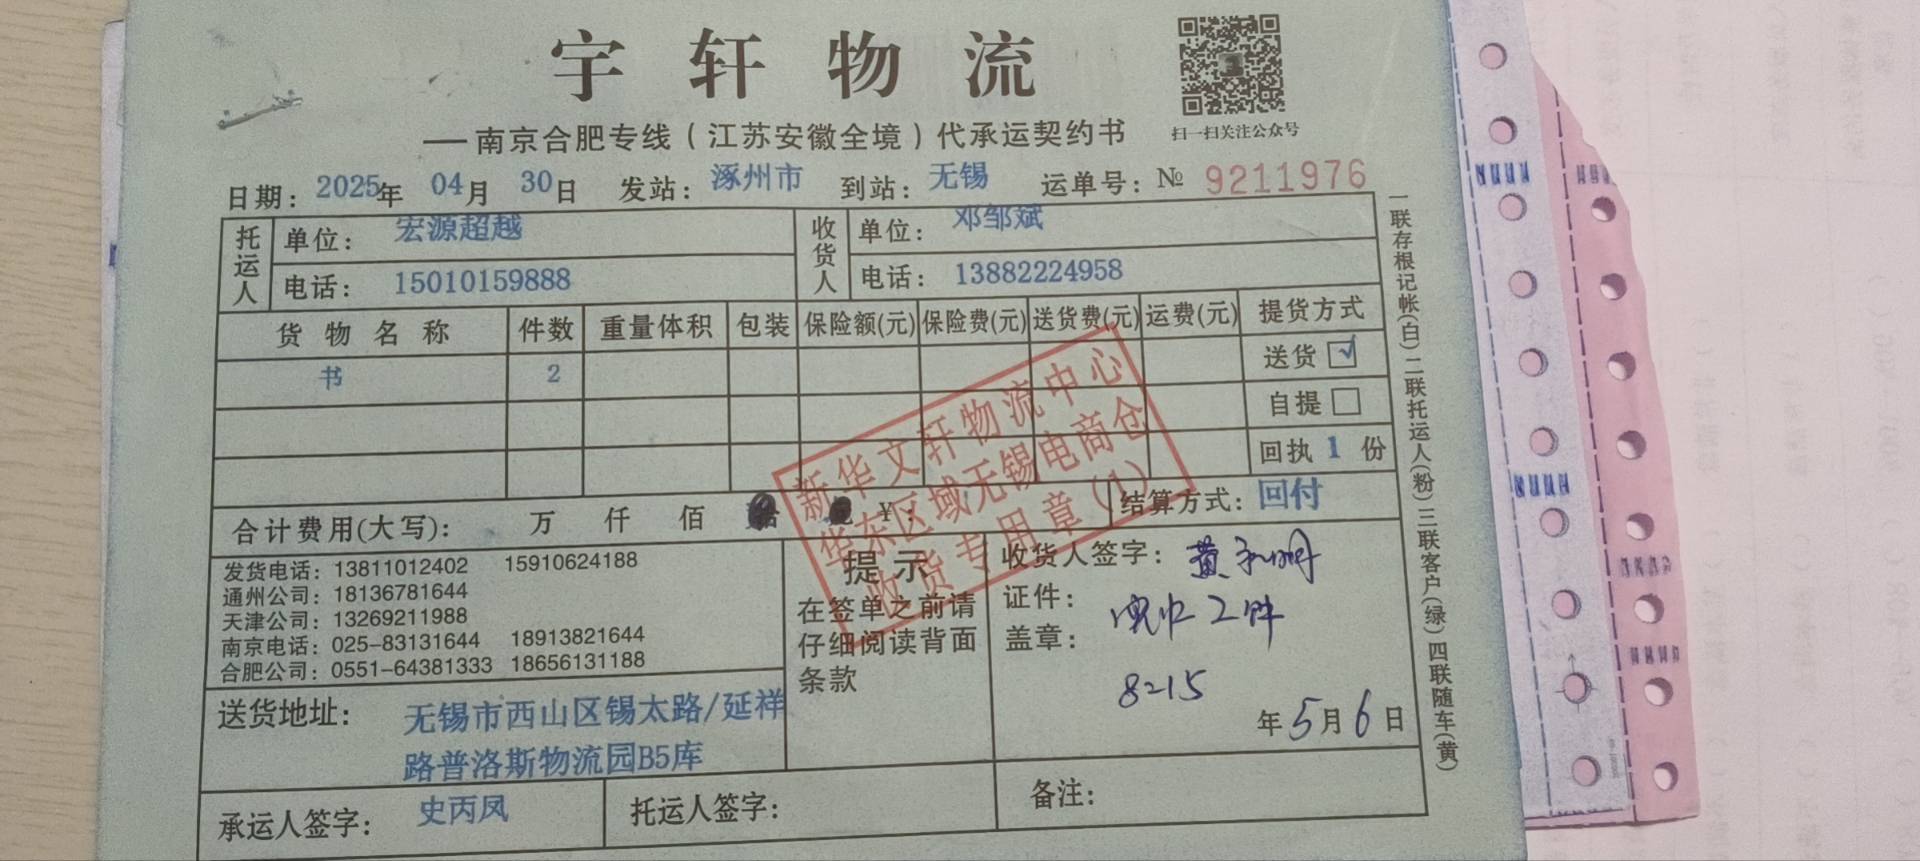 宇轩物流
扫一扫关注公众号
——南京合肥专线（江苏安徽全境）代承运契约书
日期：2025年 04月 30日 发站：涿州市 到站：无锡 运单号：№ 9211976
托运人 单位：宏源超越 收货人 单位：邓邹斌
电话：15010159888 电话：13882224958
货物名称 件数 重量体积 包装 保险额(元) 保险费(元) 送货费(元) 运费(元) 提货方式
书 2 送货
自提
回执 1 份
合计费用(大写)： 万 仟 佰 ¥： 结算方式：回付
新华文轩物流中心
华东区域无锡电商仓
收货专用章（1）
发货电话：13811012402 15910624188
通州公司：18136781644
天津公司：13269211988
南京电话：025-83131644 18913821644
合肥公司：0551-64381333 18656131188
提示
在签单之前请
仔细阅读背面
条款
收货人签字：黄
证件： 2件
盖章：
8215
年5月6日
送货地址：无锡市西山区锡太路/延祥
路普洛斯物流园B5库
承运人签字：史丙凤 托运人签字： 备注：
一联存根记帐(白) 二联托运人(粉) 三联客户(绿) 四联随车(黄)